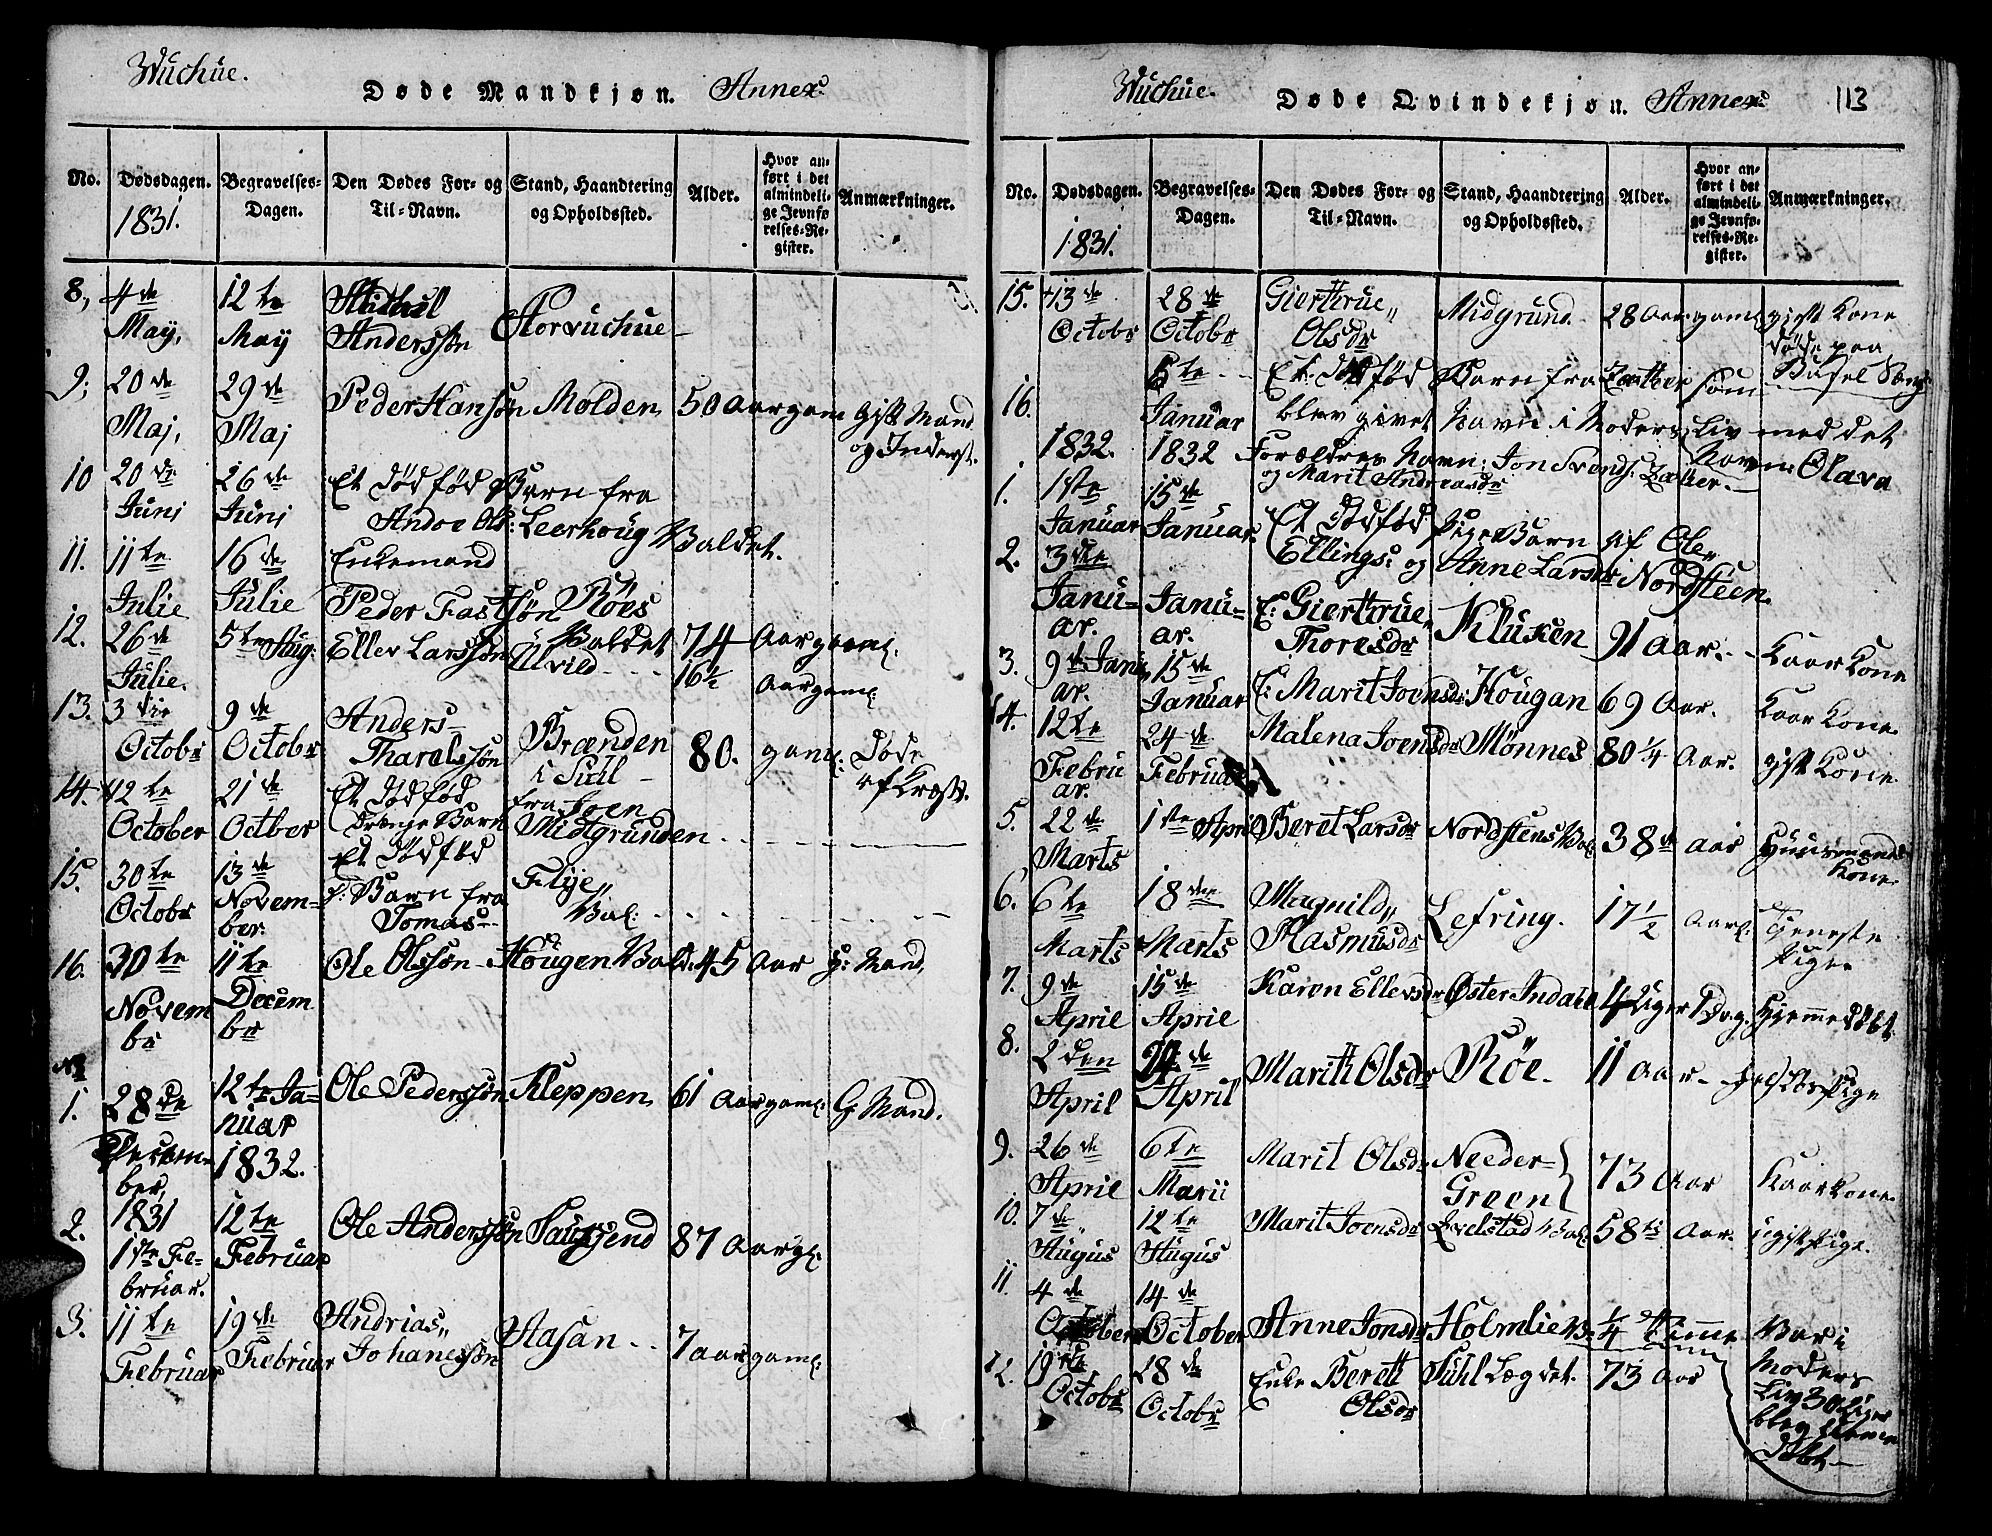 Wuchue.
Døde Mandkjøn. Annex
No. Dødsdagen. Begravelses-Dagen. Den Dødes For- og Til-Navn. Stand, Haandtering og Opholdssted. Alder. Hvor anført i det almindelige Jevnførelses-Register. Anmærkninger.
1831.
8, 4de May, 12te May Anderssøn Storvuchue
9; 20de Maj, 29de Maj Peder Hansøn Molden 50 Aar gam gift Mand og Inderst.
10 20de Junj 26de Junj Et dødfød Barn fra
Andoe Ols: Leerhoug Valdet.
11. 11te Julie 16de Julie Enkemand
Peder Fastsøn Röes Valdet 74 Aar gaml.
12. 26de Julie. 5te Aug: Ellev Larssøn Ulvild 16½ Aar gaml
13. 3die Octobr 9de Octobr Anders Tharalssøn Brænden i Suul 80. gaml: døde af
14. 12te October 21de Octber Et dødfød Drenge Barn fra Joen Midtgrunden
15. 30te Octobr 13de November. Et dødfød d: Barn fra Tomas Flye Val:
16. 30te Novembr 11te Decembr Ole Olssøn Hougen Vald: 45 Aar g: Mand.
1. 28de December, 1831 12te Januar 1832. Ole Pederssøn Kleppen 61 Aar gaml: G: Mand.
2. 1ste Februar. 12te Februar Ole Anderssøn 87 Aar gl:
3. 11te Februar 19de Februar Andrias Johanessøn Aasan 7 aar gaml:
Wuchue.
Døde Qvindekjøn. Annex
113
No. Dødsdagen. Begravelses-Dagen. Den Dødes For- og Til-Navn. Stand, Haandtering og Opholdssted. Alder. Hvor anført i det almindelige Jevnførelses-Register. Anmærkninger.
1831.
15. 13de Octobr 28de Octobr Gierthrue Olsdr Midgrund 28 Aar gaml gift Kone døde paa Barsel Seng
16. 6te Januar Et dødfød Barn fra Zæther som
blev givet Navn i Moders Liv med det
1832. 1832 Forældres Navn: Jon Svends: Zætter Navn Olava
og Marit Andreasdr
1. 1ste Januar 15de Januar Et dødfød Pige Barn af Ole
Ellings: og Anne Larsdr i Nordsteen
2. 3die Januar. Januar. E: Gierthrue Thoresdr Kluken 91 Aar. Kaar Kone
3. 9de Januar. 15de Januar E: Marit Joensdr Hougan 69 Aar. Kaar Kone.
4. 12te Februar. 24de Februar Malena Joensdr Mönnes 80¼ Aar. gift Kone.
5. 22de Marts 1ste April Beret Larsdr Nordstens Val: 38 aar Huusmands Kone
6. 6te Marts 18de Marts Magnild Rasmusdr Lefring. 17½ Aar Tjeneste Pige
7. 9de April 15de April Karen Ellevsdr Øster Indal 4 Uger 1 Dag. Hjemmedøbt.
8. 2den April April Marith Olsdr Röe. 11 Aar Pige
9. 26de April 6te Marit Olsdr Needer Green 73 Aar Kaarkone
10. 7de Augus 12te Augus Marit Joensdr Levelstad Val: 58 Aar. ugift Pige.
11 4de October 14de October Anne Jonsdr Holmlie V: ¼ Time Var i Moders Liv
12. 19de Octobr 28de Octobr Enke Berett Olsdr Suhl Lægdet. 73 Aar